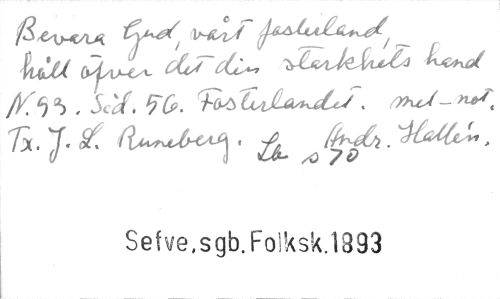 Bevara Gud, vårt fosterland,
håll öfver det din starkhets hand
N. 93. Sid. 56. Fosterlandet. mel-not.
Tx. J. L. Runeberg. Andr. Hallén.
s 70
Sefve, sgb. Folksk. 1893